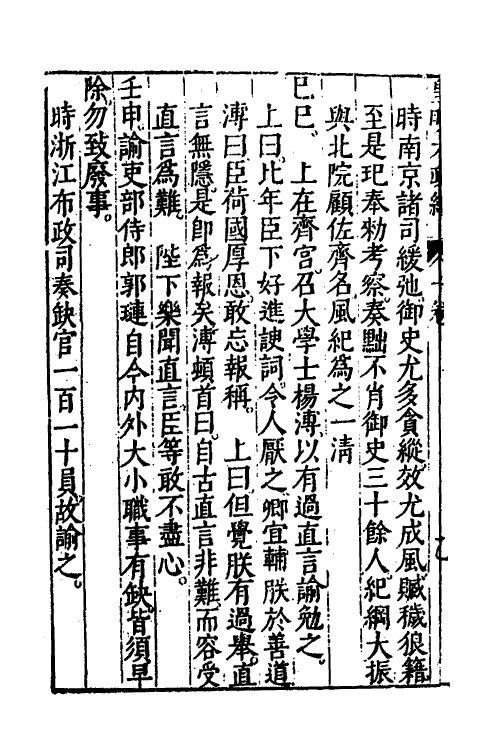 時南京諸司緩弛御史尤多貪縱效尤成風贓穢狼籍
至是玘奉勑考察奏黜不肖御史三十餘人紀綱大振
與北院顧佐齊名風紀爲之一清
己巳。上在齊宫召大學士楊溥以有過直言諭勉之。
上曰比年臣下好進諛詞。令人厭之卿宜輔朕於善道
溥曰臣荷國厚恩敢忘報稱。上曰但覺朕有過舉直
言無隱。是卽爲報矣溥頓首曰自古直言非難而容受
直言爲難。陛下樂聞直言。臣等敢不盡心。
壬申諭吏部侍郎郭璡自今内外大小職事有缺皆須早
除勿致廢事。
時浙江布政司奏缺官一百一十員故諭之。